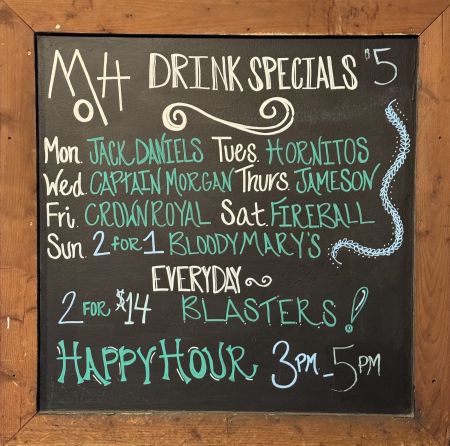 MOH DRINK SPECIALS $5
Mon. JACK DANIELS Tues. HORNITOS
Wed. CAPTAIN MORGAN Thurs. JAMESON
Fri. CROWN ROYAL Sat. FIREBALL
Sun. 2 FOR 1 BLOODY MARY'S
EVERYDAY ~
2 FOR $14 BLASTERS!
HAPPY HOUR 3PM - 5PM